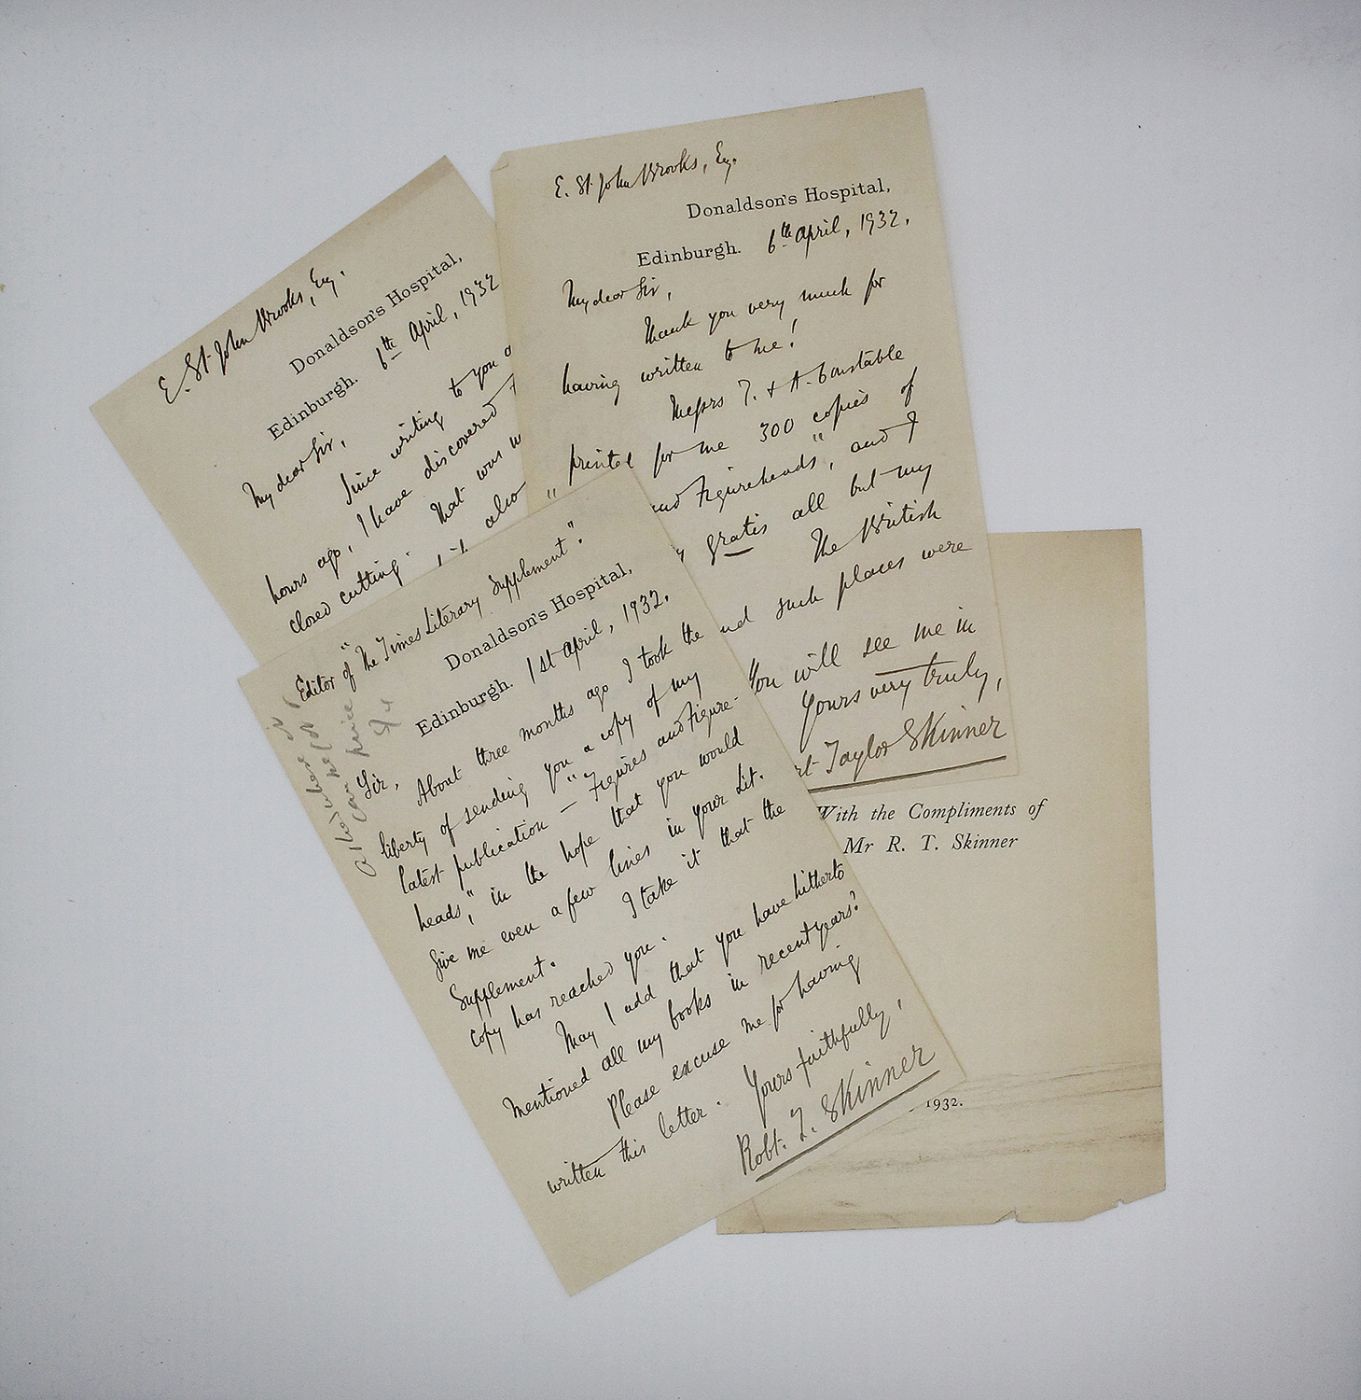 E. St. John Brooks, Esq.
Donaldson's Hospital,
Edinburgh. 6th April, 1932
My dear Sir,
Since writing to you
hours ago, I have discovered
that was
closed cutting also
E. St. John Brooks, Esq.
Donaldson's Hospital,
Edinburgh. 6th April, 1932.
My dear Sir,
Thank you very much for
having written to me!
Messrs T. & A. Constable
printed for me 300 copies of
" and Figureheads", and I
gratis all but my
The British
and such places were
You will see me in
Yours very truly,
Taylor Skinner
Editor of "The Times Literary Supplement".
Donaldson's Hospital,
Edinburgh. 1st April, 1932.
Sir,
About three months ago I took the
liberty of sending you a copy of my
latest publication – "Figures and Figure-
heads", in the hope that you would
give me even a few lines in your Lit.
Supplement. I take it that the
copy has reached you.
May I add that you have hitherto
mentioned all my books in recent years?
Please excuse me for having
written this letter. Yours faithfully,
Robt. T. Skinner
With the Compliments of
Mr R. T. Skinner
1932.